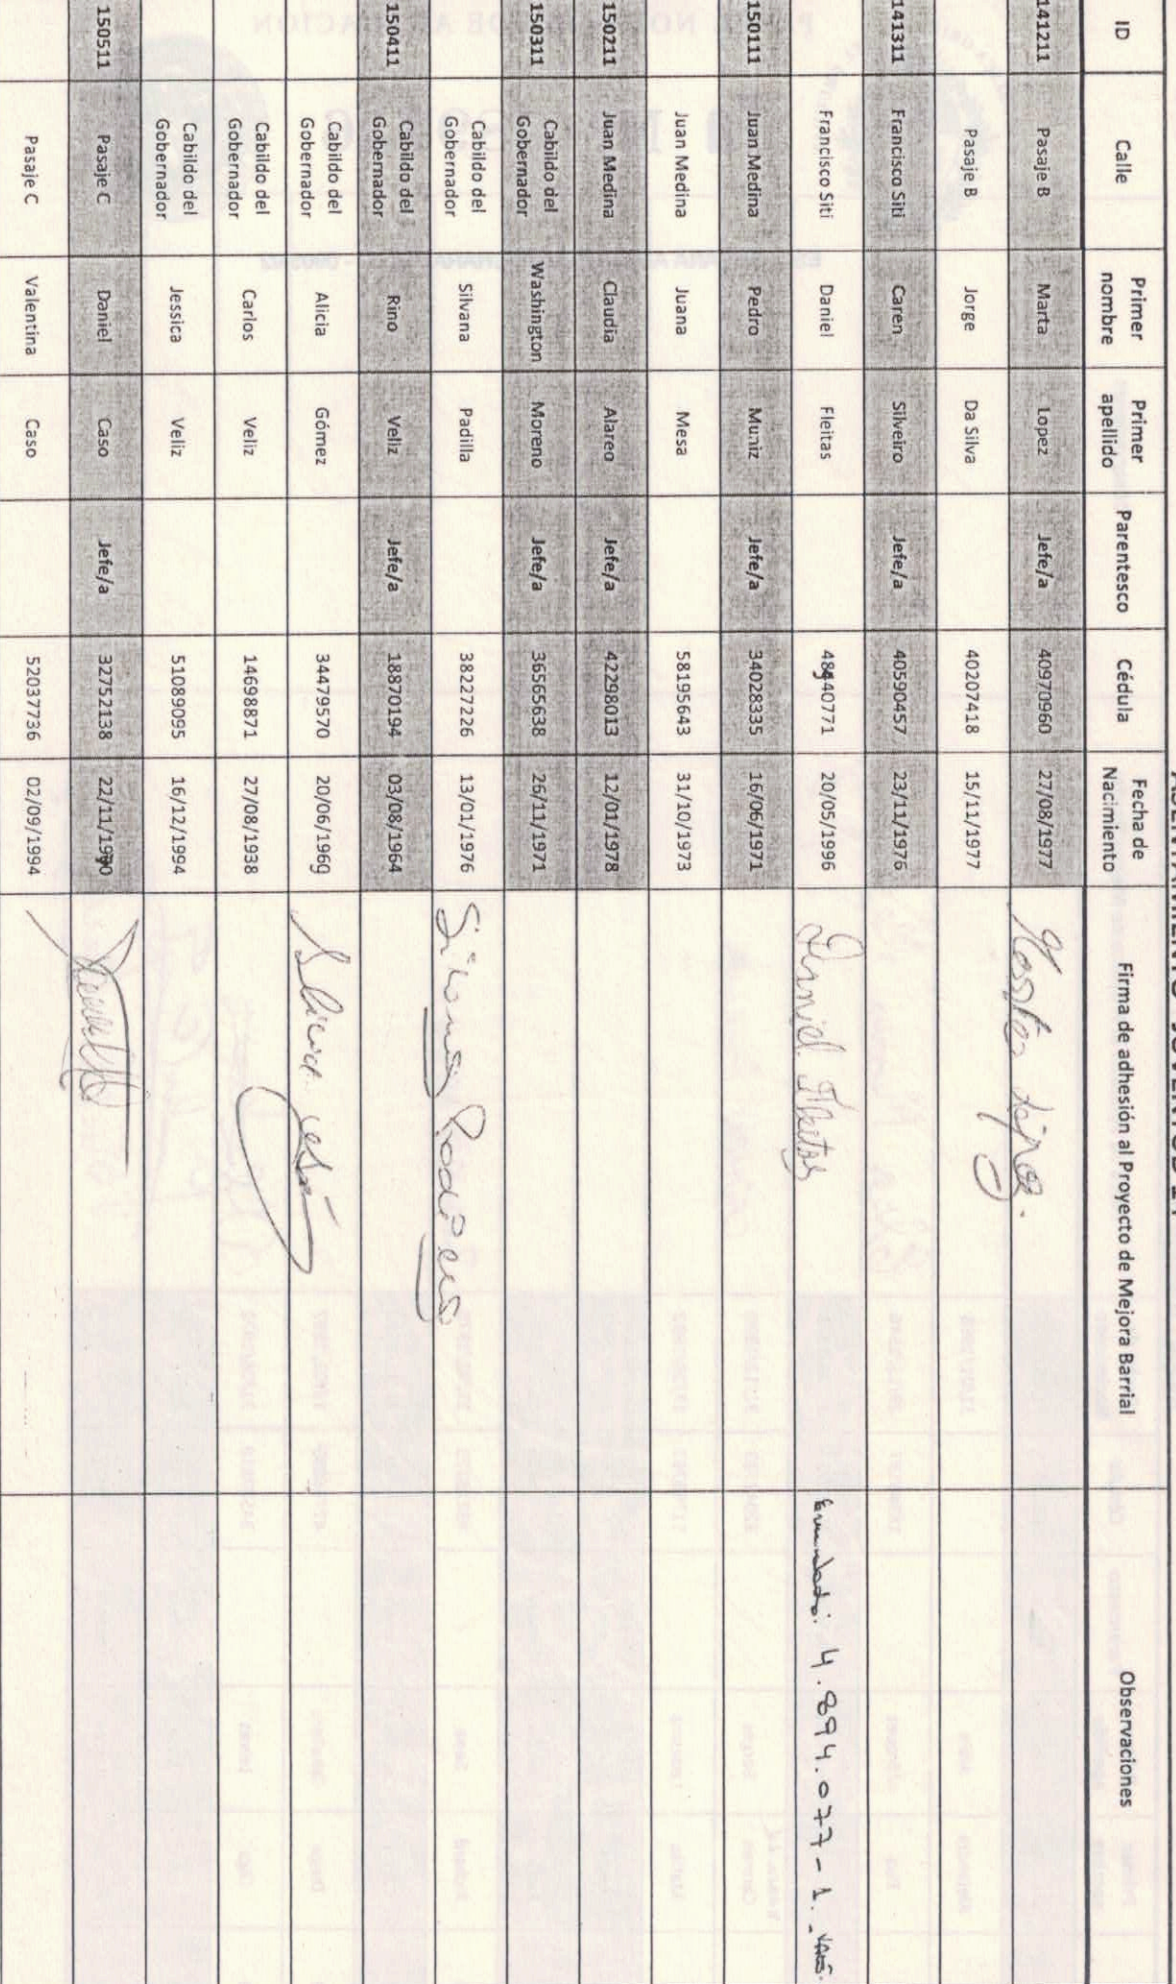 ID Calle Primer nombre Primer apellido Parentesco Cédula Fecha de Nacimiento Firma de adhesión al Proyecto de Mejora Barrial Observaciones
141211 Pasaje B Marta Lopez Jefe/a 40970960 27/08/1977
Pasaje B Jorge Da Silva 40207418 15/11/1977
141311 Francisco Siti Caren Silveiro Jefe/a 40590457 23/11/1976
Francisco Siti Daniel Fleitas 48940771 20/05/1996 Daniel Fleitas Enmendado: 4.894.077-1.
150111 Juan Medina Pedro Muniz Jefe/a 34028335 16/06/1971
Juan Medina Juana Mesa 58195643 31/10/1973
150211 Juan Medina Claudia Alareo Jefe/a 42298013 12/01/1978
150311 Cabildo del Gobernador Washington Moreno Jefe/a 36565638 26/11/1971
Cabildo del Gobernador Silvana Padilla 38227226 13/01/1976 Silvana
150411 Cabildo del Gobernador Rino Veliz Jefe/a 18870194 03/08/1964
Cabildo del Gobernador Alicia Gómez 34479570 20/06/1969 Alicia
Cabildo del Gobernador Carlos Veliz 14698871 27/08/1938
Cabildo del Gobernador Jessica Veliz 51089095 16/12/1994
150511 Pasaje C Daniel Caso Jefe/a 32752138 22/11/1970
Pasaje C Valentina Caso 52037736 02/09/1994